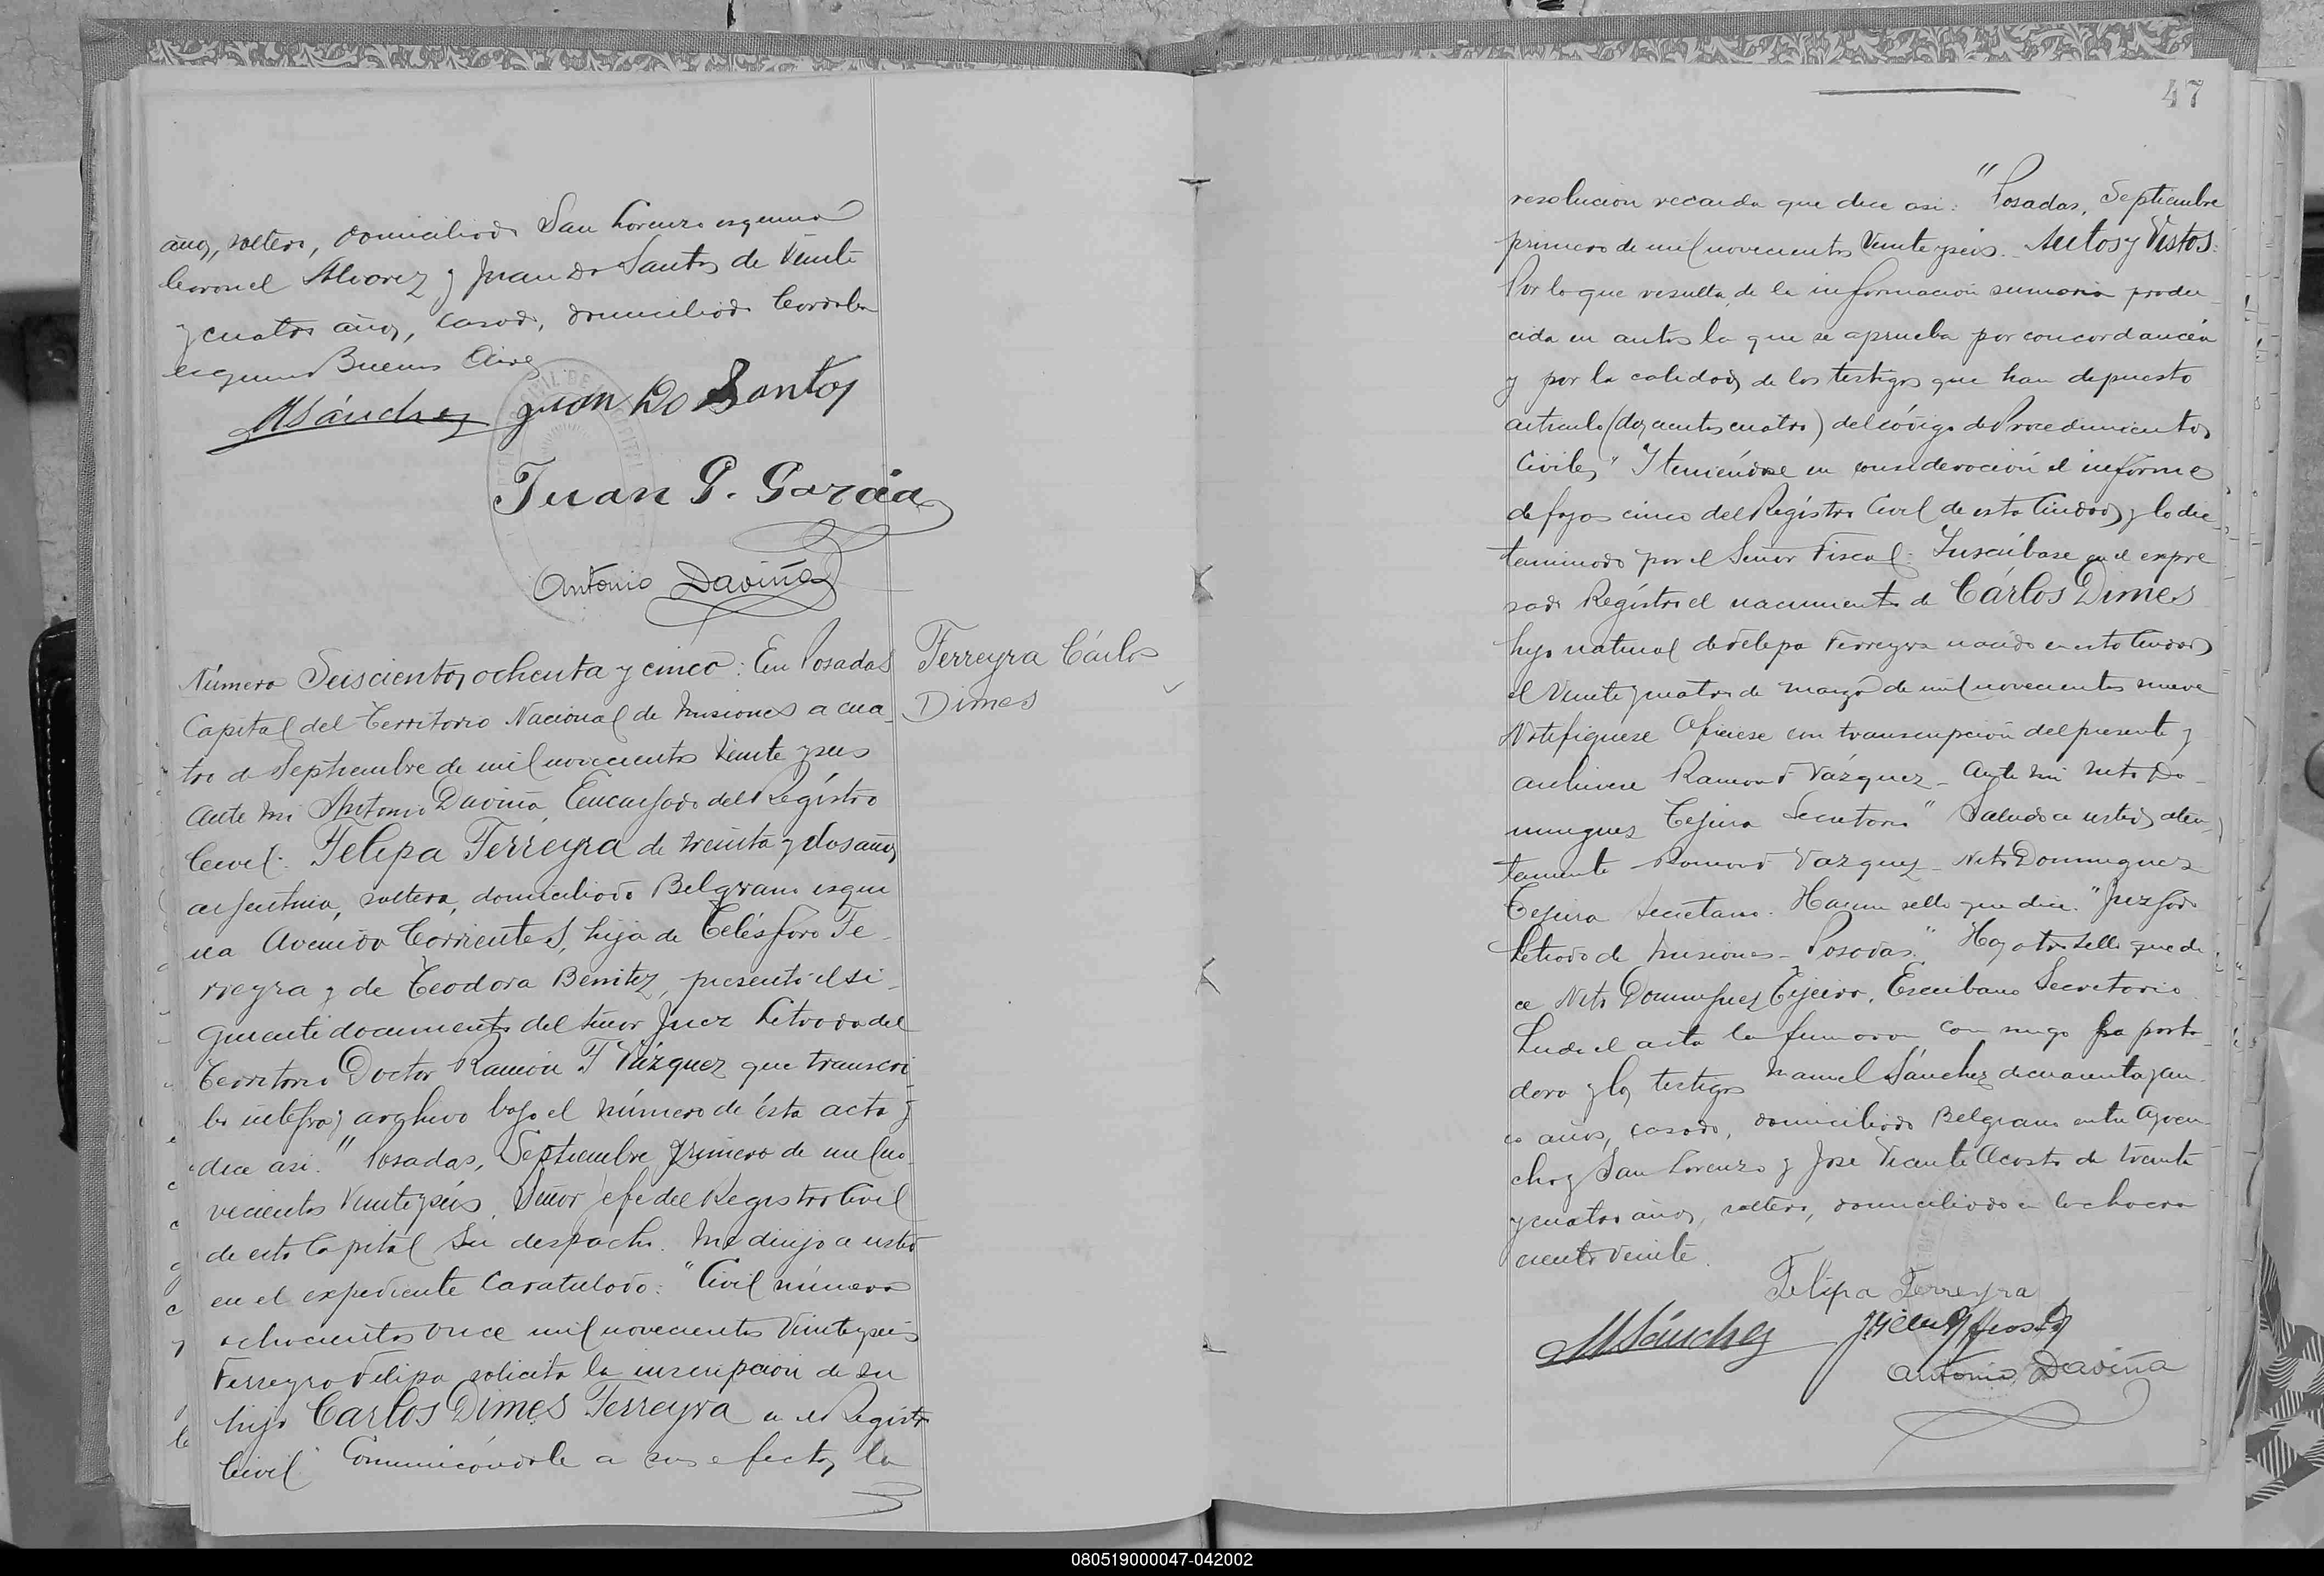 años, soltero, domiciliado San Lorenzo esquina
Coronel Alvarez y Juan Do Santos de Veinte
y cuatro años, casado, domiciliado Cordoba
esquina Buenos Aires
MSánchez Juan Do Santos
Juan G. Garcia
Antonio Daviña
Número Seiscientos ochenta y cinco: En Posadas
Capital del Territorio Nacional de Misiones a cua-
tro de Septiembre de mil novecientos Veinte y seis
Ante mi Antonio Daviña, Encargado del Registro
Civil: Felipa Ferreyra de treinta y dos años
argentina, soltera, domiciliada Belgrano esqui
na Avenida Corrientes, hija de Telésforo Fe-
rreyra y de Teodora Benitez, presentó el si-
guiente documento del Señor Juez Letrado del
Territorio Doctor Ramón F Vázquez que transcri
bo integro y archivo bajo el número de ésta acta y
dice asi: "Posadas, Septiembre primero de mil no-
vecientos Veinte y seis. Señor Jefe del Registro Civil
de esta Capital Su despacho. Me dirijo a usted
en el expediente caratulado: "Civil número
ochocientos once mil novecientos Veinte y seis
Ferreyra Felipa solicita la inscripción de su
hijo Carlos Dimes Ferreyra en el Registro
Civil" Comunicándole a sus efectos la
Ferreyra Cárlos
Dimes
47
resolucion recaida que dice asi: "Posadas, Septiembre
primero de mil novecientos Veinte y seis.- Autos y Vistos:
Por lo que resulta de la informacion sumaria produ-
cida en autos la que se aprueba por concordancia
y por la calidad de los testigos que han depuesto
articulo (doscientos cuatro) del código de Procedimientos
Civiles" Y teniéndose en consideración el informe
de fojas cinco del Registro Civil de esta Ciudad y lo dic-
taminado por el Señor Fiscal: Inscríbase en el expre
sado Registro el nacimiento de Cárlos Dimes
hijo natural de Felipa Ferreyra nacido en esta Ciudad
el Veinte y cuatro de marzo de mil novecientos nueve
Notifiquese Ofíciese con transcripción del presente y
archivese Ramon F Vázquez - Ante mi Neto Do-
mingues Tejeira Secretario" Saludo a usted aten-
tamente Ramon F Vazquez - Neto Domingues
Tejeira Secretario. Hay un sello que dice: "Juzgado
Letrado de Misiones - Posadas." Hay otro sello que di
ce Neto Domingues Tejeira, Escribano Secretario
Leida el acta la firmaron conmigo la porta-
dora y los testigos Manuel Sánchez de cuarenta y cin
co años, casado, domiciliado Belgrano entre Ayacu-
cho y San Lorenzo y José Vicente Acosta de treinta
y cuatro años, soltero, domiciliado en la chacra
ciento veinte.
Felipa Ferreyra
MSánchez
Antonio Daviña
080519000047-042002